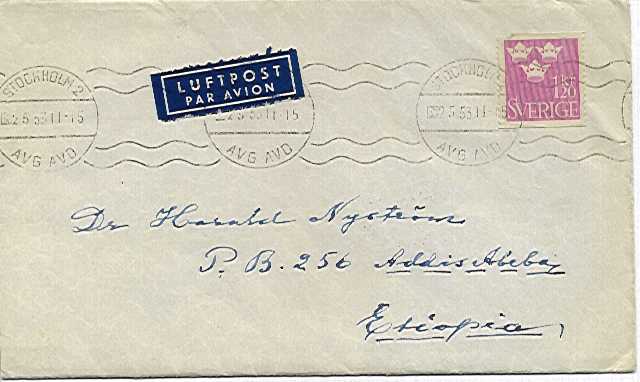 STOCKHOLM 2
22 5 53 11-15
AVG AVD
LUFTPOST
PAR AVION
2 5 53 11-15
AVG AVD
STOCKHOLM
22 5 53 11-15
AVG AVD
1 KR
120
SVERIGE
Dr Harald Nyström
P. B. 256 Addis Abeba,
Etiopia,